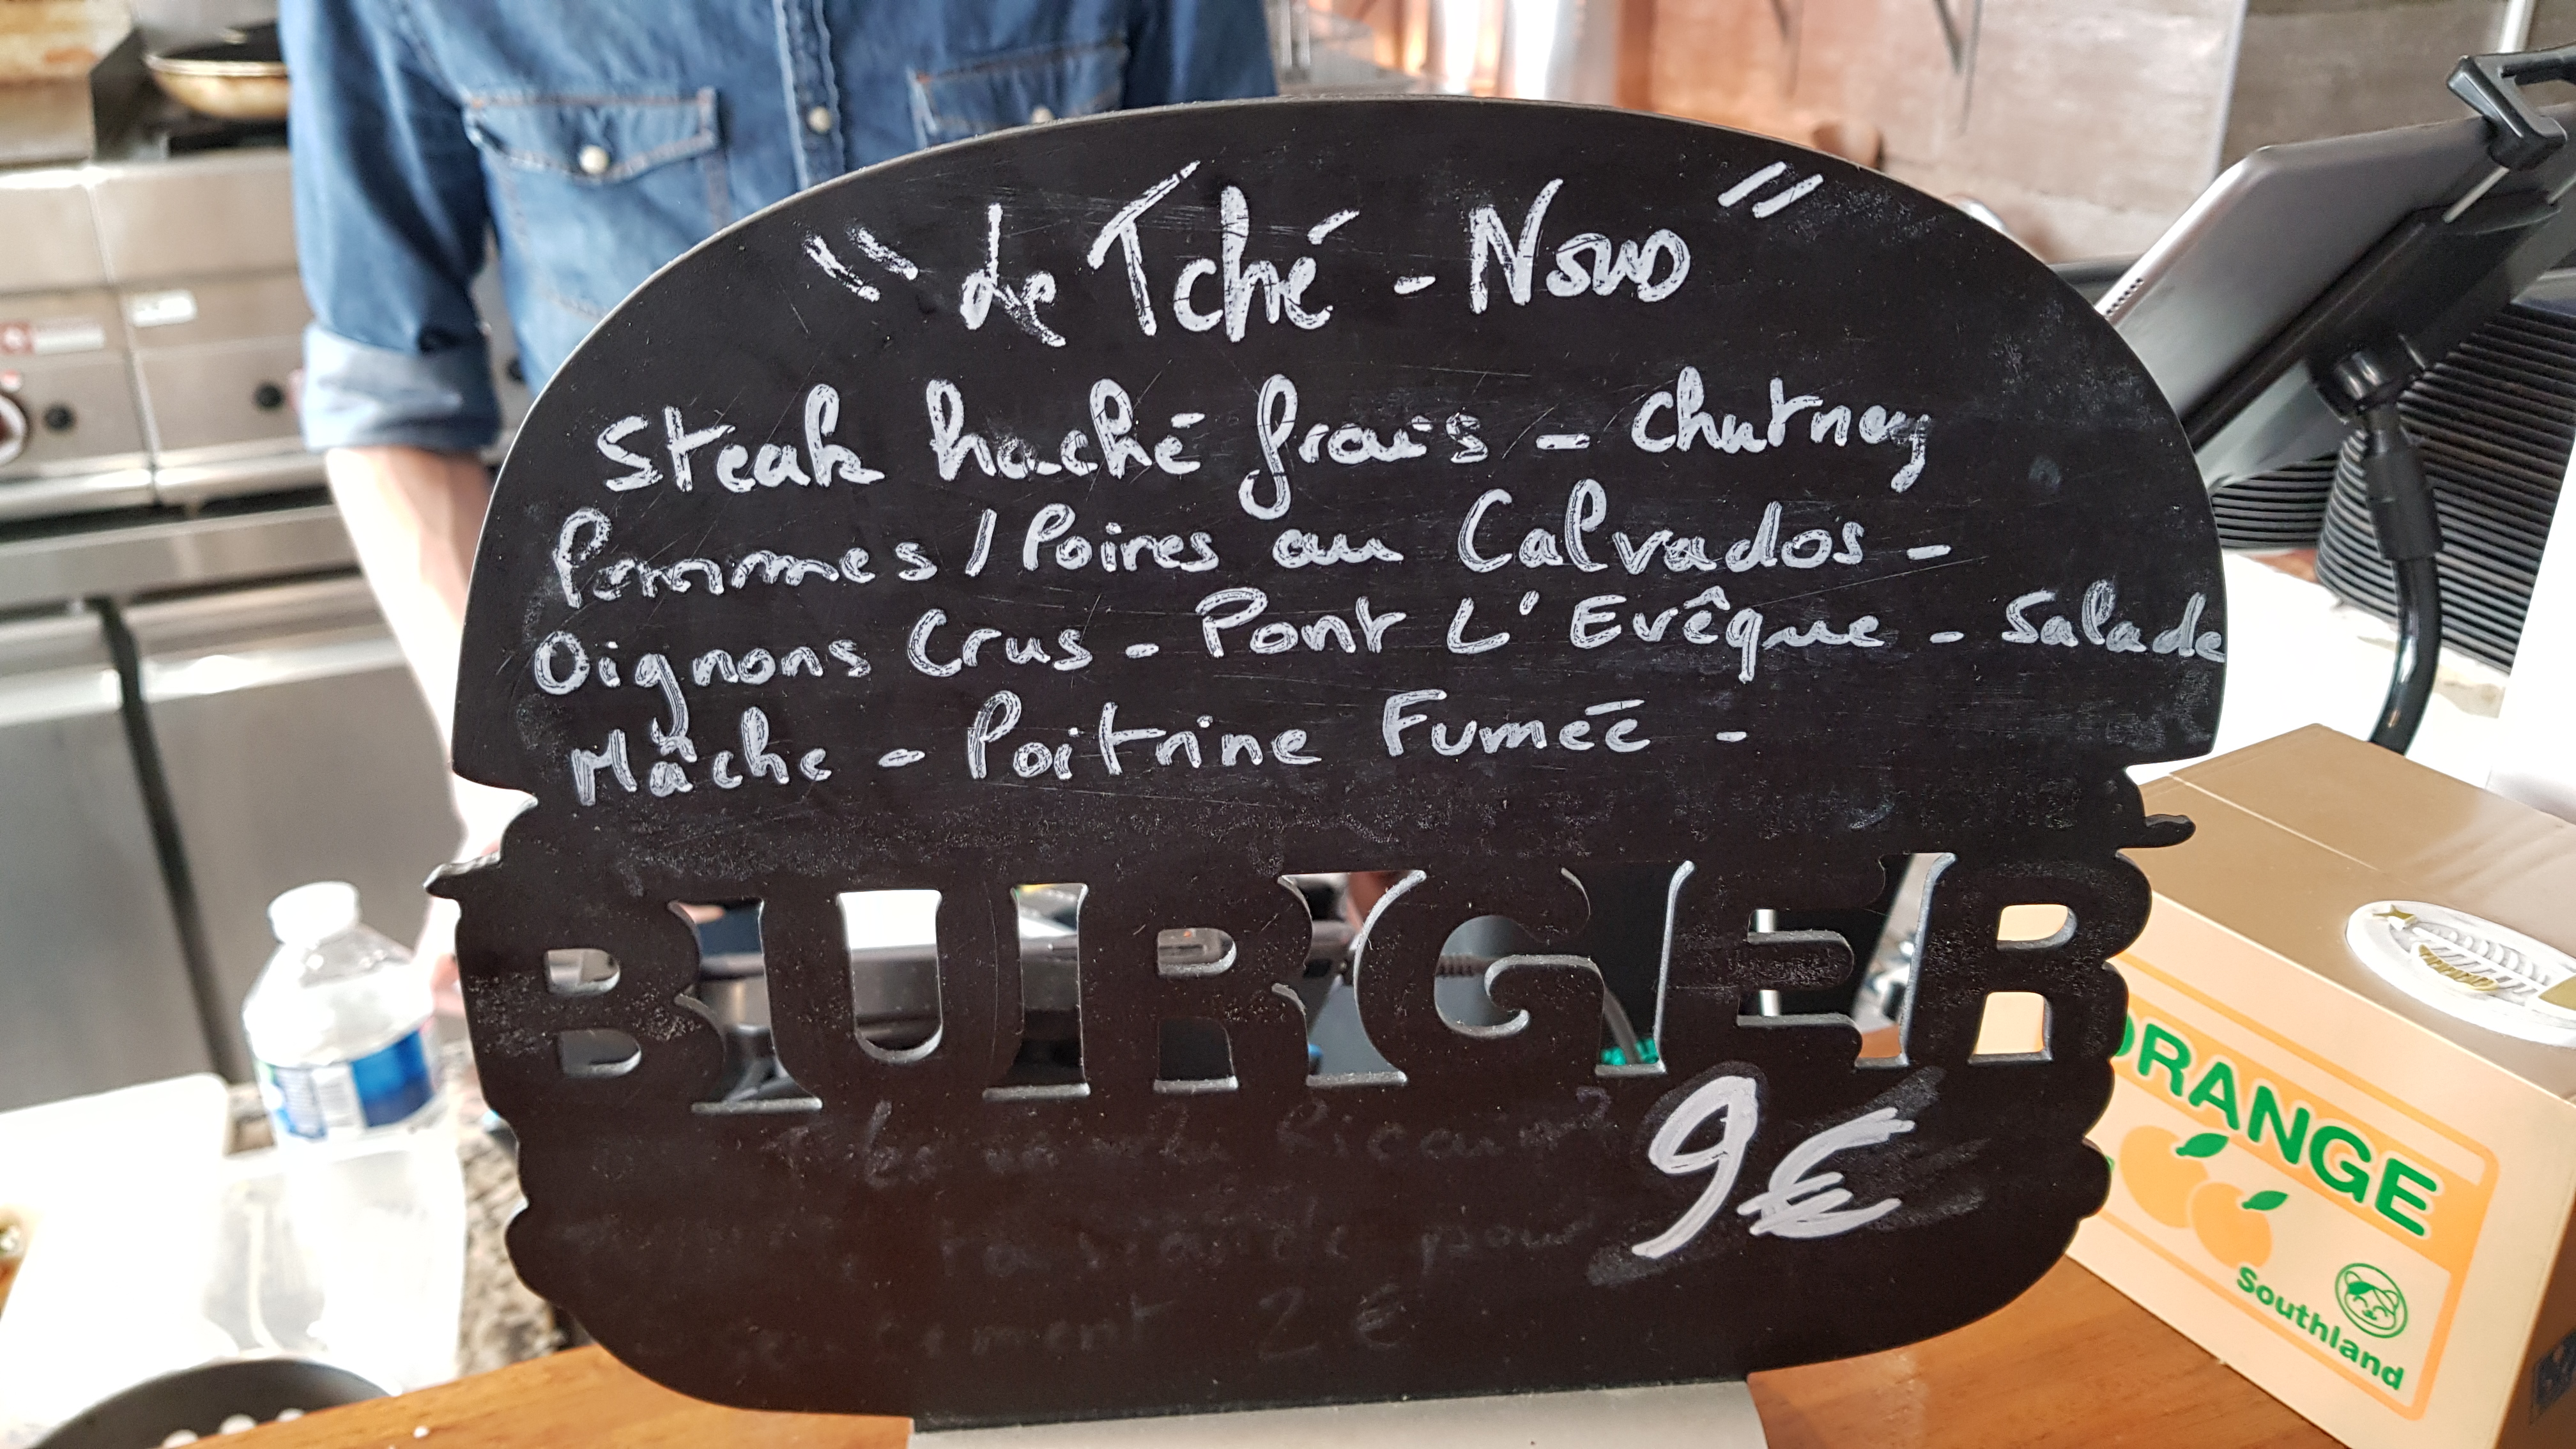 "Le Tché - Nous"
Steak haché frais - Chutney
Pommes / Poires au Calvados -
Oignons Crus - Pont L'Evêque - Salade
Mâche - Poitrine Fumée -
BURGER
9€
la viande pour
2 €
ORANGE
Southland